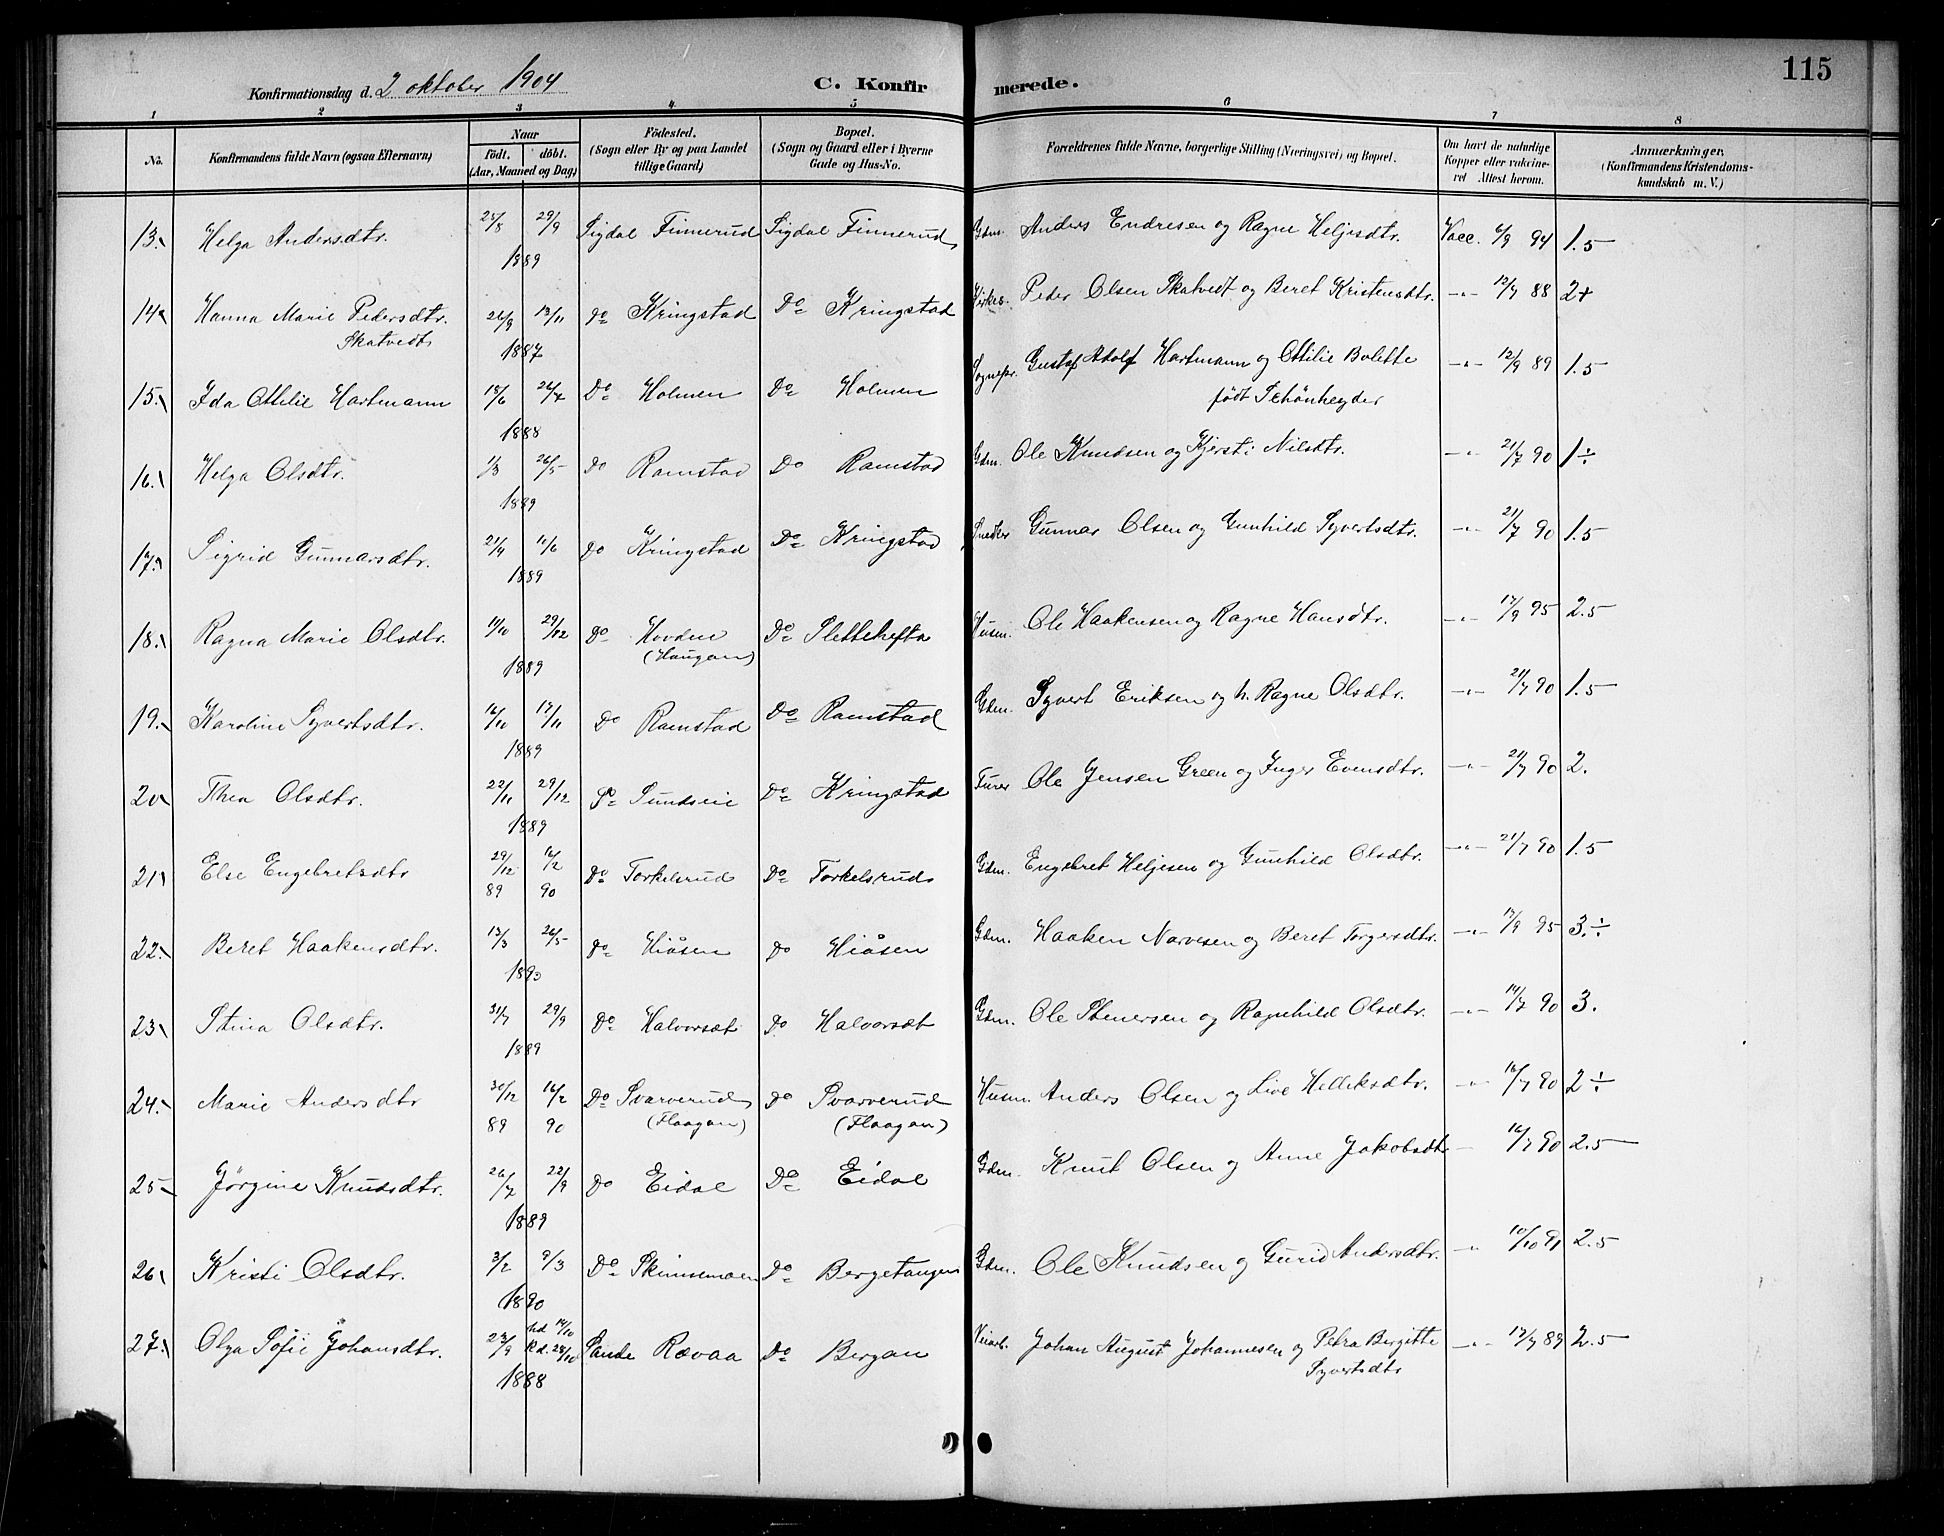 115
Konfirmationsdag d. 2 oktober 1904 C. Konfirmerede.
1 2 3 4 5 6 7 8
No. Konfirmandens fulde Navn (ogsaa Efternavn) Naar födt. döbt. (Aar, Maaned og Dag) Födested. (Sogn eller By og paa Landet tillige Gaard) Bopæl. (Sogn og Gaard eller i Byerne Gade og Hus-No. Forældrenes fulde Navne, borgerlige Stilling (Næringsvei) og Bopæl. Om havt de naturlige Kopper eller vakcineret Attest herom. Anmærkninger, (Konfirmandens Kristendomskundskab m. V.)
13. Helga Andersdtr. 29/9 1889 Sigdal Finnerud Sigdal Finnerud Gdm. Anders Endresen og Ragne Heljesdtr. Vacc. 6/9 94 1.5
14. Hanna Marie Pedersdtr. Skatvedt 13/11 1887 Do Kringstad Do Kringstad Peder Olsen Skatvedt og Beret Kristensdtr. -"- 12/7 88 2+
15. Ida Ottilie Hartmann 1888 Do Holmen Do Holmen Sognepr. Gustaf Adolf Hartmann og Ottilie Bolette födt Schönheyder -"- 12/9 89 1.5
16. Helga Olsdtr. 1/3 26/5 1889 Do Ramstad Do Ramstad Gdm. Ole Knudsen og Kjersti Nilsdtr. -"- 21/7 90 1÷
17. Sigrid Gunnarsdtr. 1889 Do Kringstad Do Kringstad Gunnar Olsen og Gunhild Syvertsdtr. -"- 21/7 90 1.5
18. Ragna Marie Olsdtr. 29/12 1889 Do Hovden (Haugan) Do Slettehefta Husm. Ole Haakensen og Ragne Hansdtr. -"- 17/9 95 2.5
19. Karoline Syvertsdtr. 16/10 17/11 1889 Do Ramstad Do Ramstad Gdm. Syvert Eriksen og h. Ragne Olsdtr. -"- 21/7 90 1.5
20. Thea Olsdtr. 22/11 29/12 1889 Do Sundseie Do Kringstad Ole Jensen Green og Inger Evensdtr. -"- 21/7 90 2.
21. Else Engebretsdtr 29/12 89 16/2 90 Do Torkelsrud Do Torkelsrud Gdm. Engebret Heljesen og Gunhild Olsdtr. -"- 21/7 90 1.5
22. Beret Haakensdtr. 13/3 26/5 1890 Do Hiåsen Do Hiåsen Gdm. Haaken Narvesen og Beret Torgersdtr. -"- 17/9 95 3.÷
23. Stina Olsdtr. 31/7 29/9 1889 Do Halvorsæt Do Halvorsæt Gdm. Ole Stenersen og Ragnhild Olsdtr. -"- 14/7 90 3.
24. Marie Andersdtr 30/12 89 16/2 90 Do Svarverud (Flaagan) Do Svarverud (Flaagan) Husm. Anders Olsen og Live Helleksdtr. -"- 16/7 90 2÷
25 Jørgine Knudsdtr. 26/7 22/9 1889 Do Eidal Do Eidal Gdm. Knut Olsen og Anne Jakobsdtr - 16/7 90 2.5
26. Kristi Olsdtr. 3/2 9/3 1890 Do Skinsemoen Do Bergetangen Gdm. Ole Knudsen og Gurid Andersdtr. -"- 10/10 91 2.5
27. Olga Sofie Johansdtr. 23/9 hd 14/10 Kd. 28/10 1888 Sande Rævaa Do Bergan Veiarb. Johan August Johannesen og Petra Bergitte Syvertsdtr -"- 17/7 89 2.5